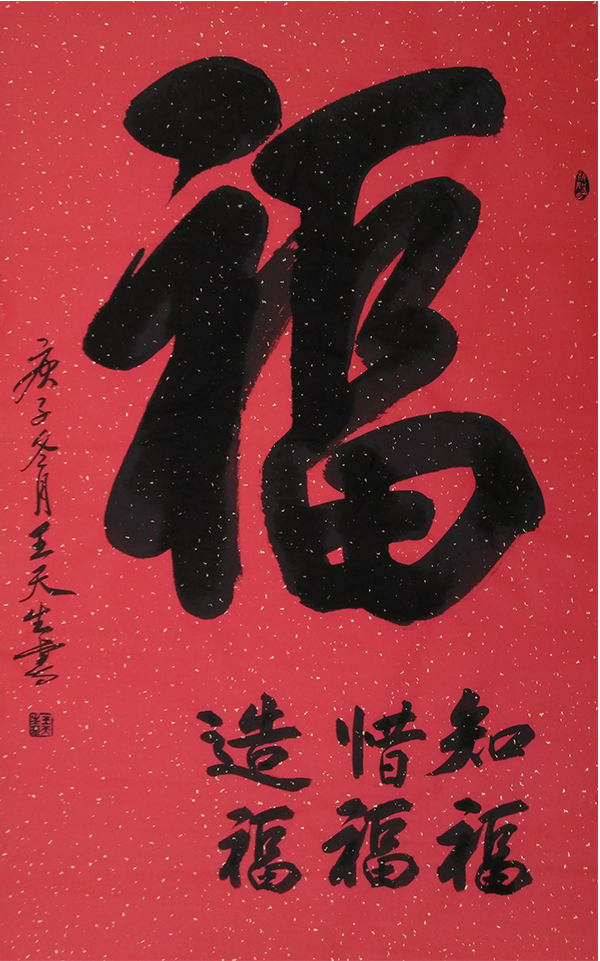 福
知福
惜福
造福
庚子冬月王天生書